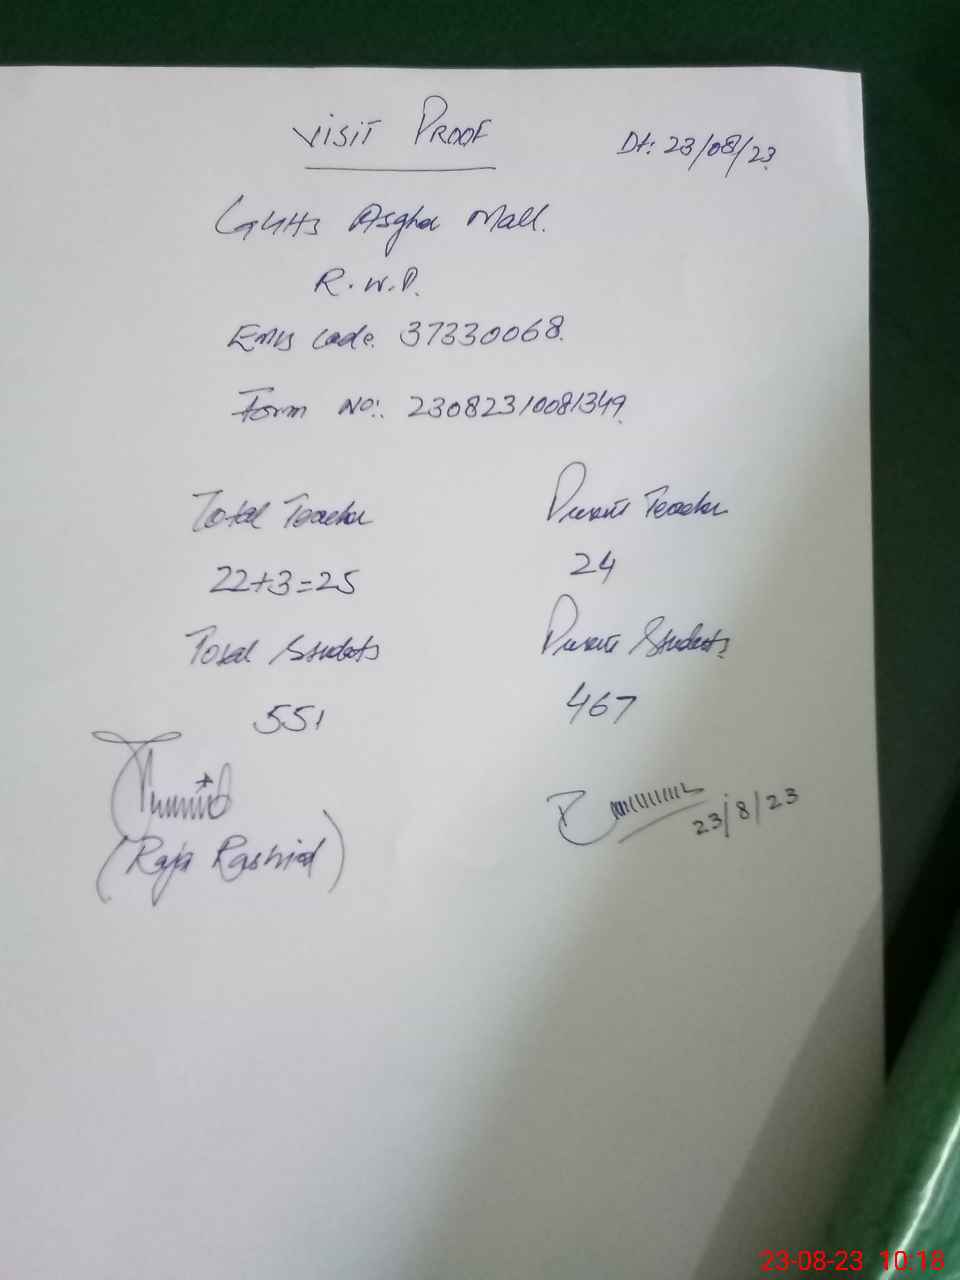 VISIT PROOF
Dt: 23/08/23
GHHS Asghar Mall.
R.W.P.
Emis Code. 37330068.
Form No:. 23082310081349
Total Teacher
Present Teacher
22+3=25
24
Total Students
Present Students
551
467
23/8/23
(Raja Rashid)
23-08-23 10:18